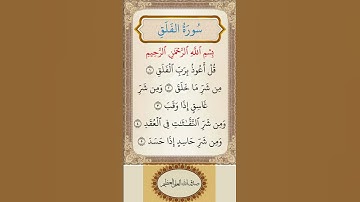 سُورَةُ الفَلَقِ
بِسْمِ ٱللَّهِ ٱلرَّحْمَٰنِ ٱلرَّحِيمِ
قُلْ أَعُوذُ بِرَبِّ ٱلْفَلَقِ ۝
مِن شَرِّ مَا خَلَقَ ۝ وَمِن شَرِّ
غَاسِقٍ إِذَا وَقَبَ ۝
وَمِن شَرِّ ٱلنَّفَّٰثَٰتِ فِى ٱلْعُقَدِ ۝
وَمِن شَرِّ حَاسِدٍ إِذَا حَسَدَ ۝
صدق الله العلي العظيم